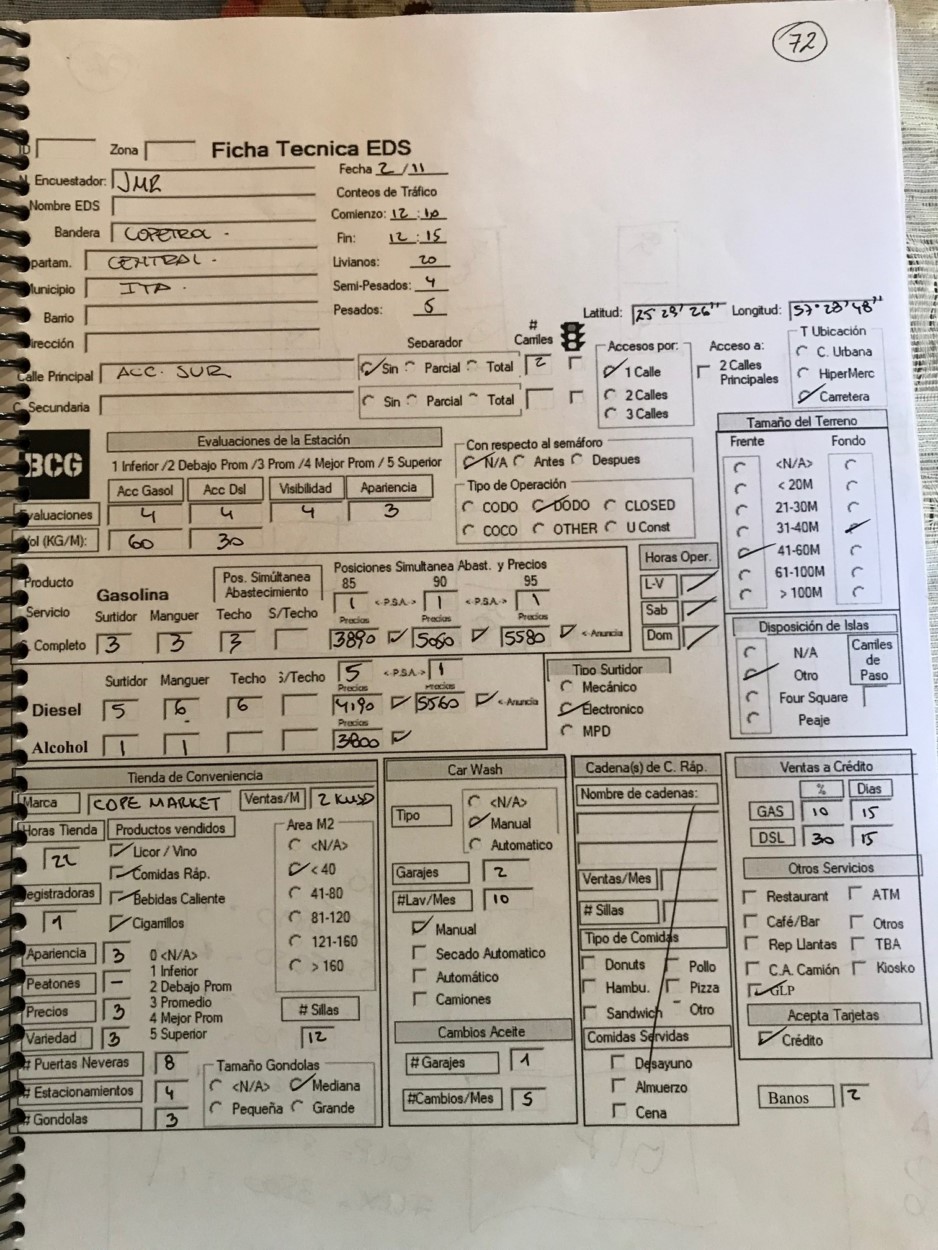 72
Zona Ficha Tecnica EDS
Encuestador: JMR Fecha 2/11
Nombre EDS Conteos de Tráfico
Bandera COPETROL. Comienzo: 12:10
Fin: 12:15
partam. CENTRAL. Livianos: 20
unicipio ITA. Semi-Pesados: 4
Barrio Pesados: 5
irección Latitud: Longitud:
T Ubicación
Separador # Carriles Accesos por: Acceso a: C. Urbana
Calle Principal ACC. SUR Sin Parcial Total 2 1 Calle 2 Calles Principales HiperMerc
Secundaria Sin Parcial Total 2 Calles Carretera
3 Calles
BCG Evaluaciones de la Estación Con respecto al semáforo Tamaño del Terreno
1 Inferior /2 Debajo Prom /3 Prom /4 Mejor Prom / 5 Superior N/A Antes Despues Frente Fondo
Acc Gasol Acc Dsl Visibilidad Apariencia Tipo de Operación <N/A>
valuaciones 4 4 4 3 CODO DODO CLOSED < 20M
ol (KG/M): 60 30 COCO OTHER U Const 21-30M
31-40M
41-60M
61-100M
> 100M
Producto Gasolina Pos. Simúltanea Abastecimiento Posiciones Simultanea Abast. y Precios Horas Oper.
85 90 95 L-V
Servicio 1 <-P.S.A.-> 1 <-P.S.A.-> 1 Sab
Surtidor Manguer Techo S/Techo Precios Precios Precios Dom
Completo 3 3 3 3890 5050 5580 <-Anuncia
Disposición de Islas
N/A Carriles de Paso
Otro
Four Square
Peaje
Surtidor Manguer Techo S/Techo 5 <-P.S.A.-> 1 Tipo Surtidor
Precios Precios Mecánico
Diesel 5 6 6 4190 5560 <-Anuncia Electronico
Precios MPD
Alcohol 1 1 3800
Tienda de Conveniencia
Marca COPE MARKET Ventas/M 2 KUSD
Horas Tienda Productos vendidos Area M2
22 Licor / Vino <N/A>
Comidas Ráp. < 40
egistradoras Bebidas Caliente 41-80
1 Cigarrillos 81-120
Apariencia 3 0 <N/A> 121-160
1 Inferior > 160
Peatones - 2 Debajo Prom
Precios 3 3 Promedio
4 Mejor Prom # Sillas
Variedad 3 5 Superior 12
# Puertas Neveras 8 Tamaño Gondolas
# Estacionamientos 4 <N/A> Mediana
# Gondolas 3 Pequeña Grande
Car Wash
Tipo <N/A>
Manual
Automatico
Garajes 2
#Lav/Mes 10
Manual
Secado Automatico
Automático
Camiones
Cambios Aceite
# Garajes 1
#Cambios/Mes 5
Cadena(s) de C. Ráp.
Nombre de cadenas:
Ventas/Mes
# Sillas
Tipo de Comidas
Donuts Pollo
Hambu. Pizza
Sandwich Otro
Comidas Servidas
Desayuno
Almuerzo
Cena
Ventas a Crédito
% Dias
GAS 10 15
DSL 30 15
Otros Servicios
Restaurant ATM
Café/Bar Otros
Rep Llantas TBA
C.A. Camión Kiosko
GLP
Acepta Tarjetas
Crédito
Banos 2